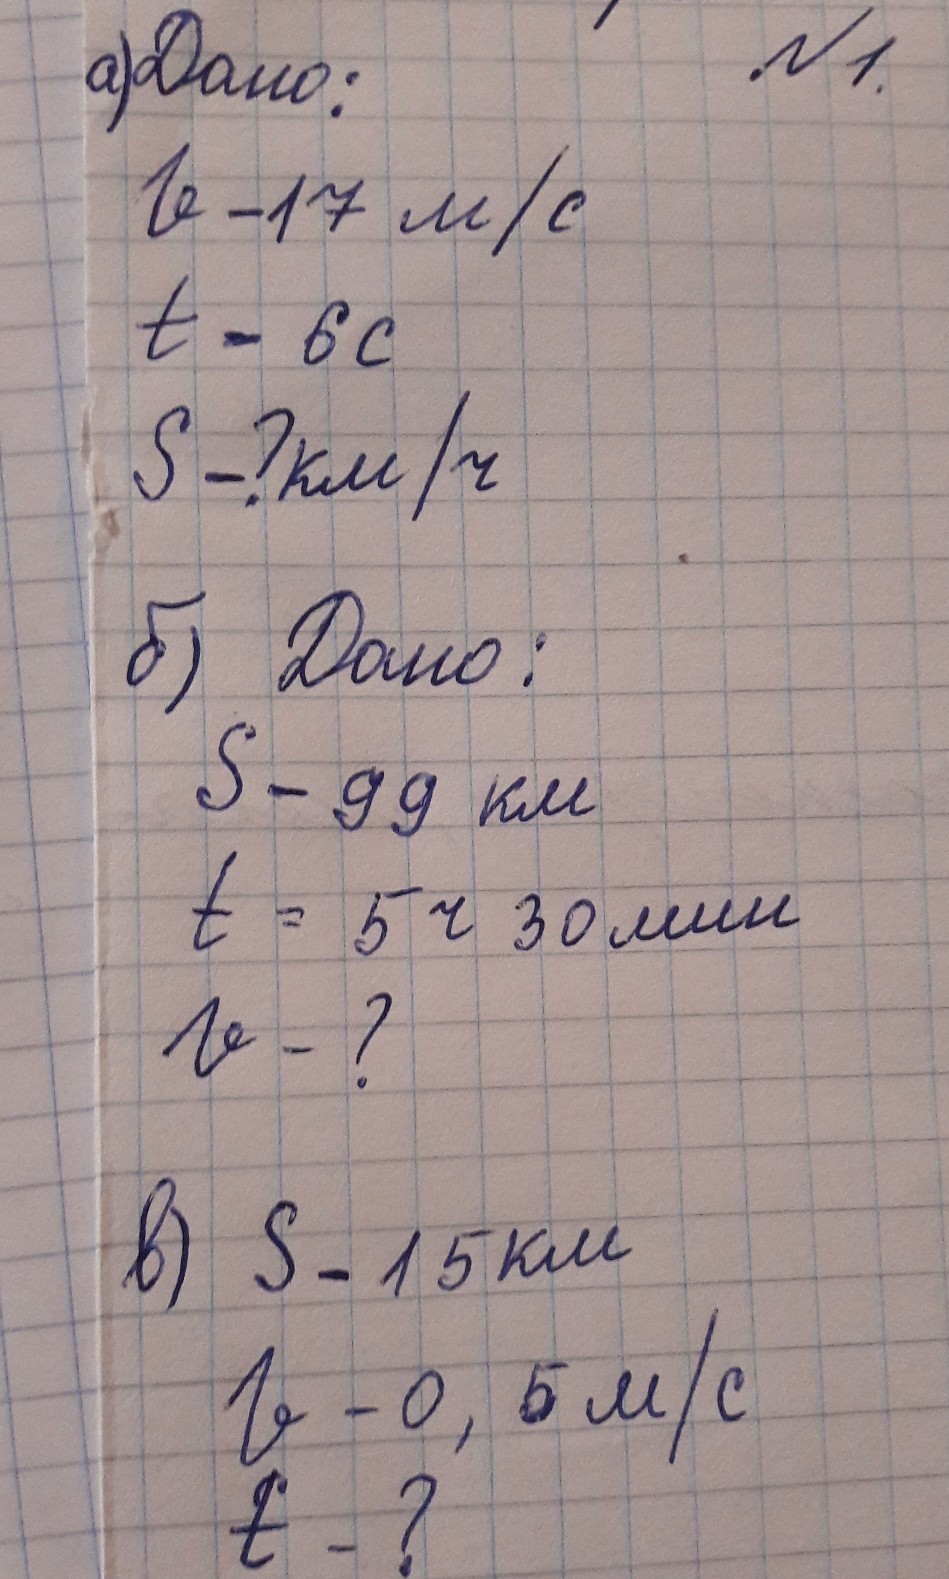 №1.
а) Дано:
v - 17 м/с
t - 6с
S - ? км/ч
б) Дано:
S - 99 км
t = 5 ч 30 мин
v - ?
в) S - 15 км
v - 0,5 м/с
t - ?